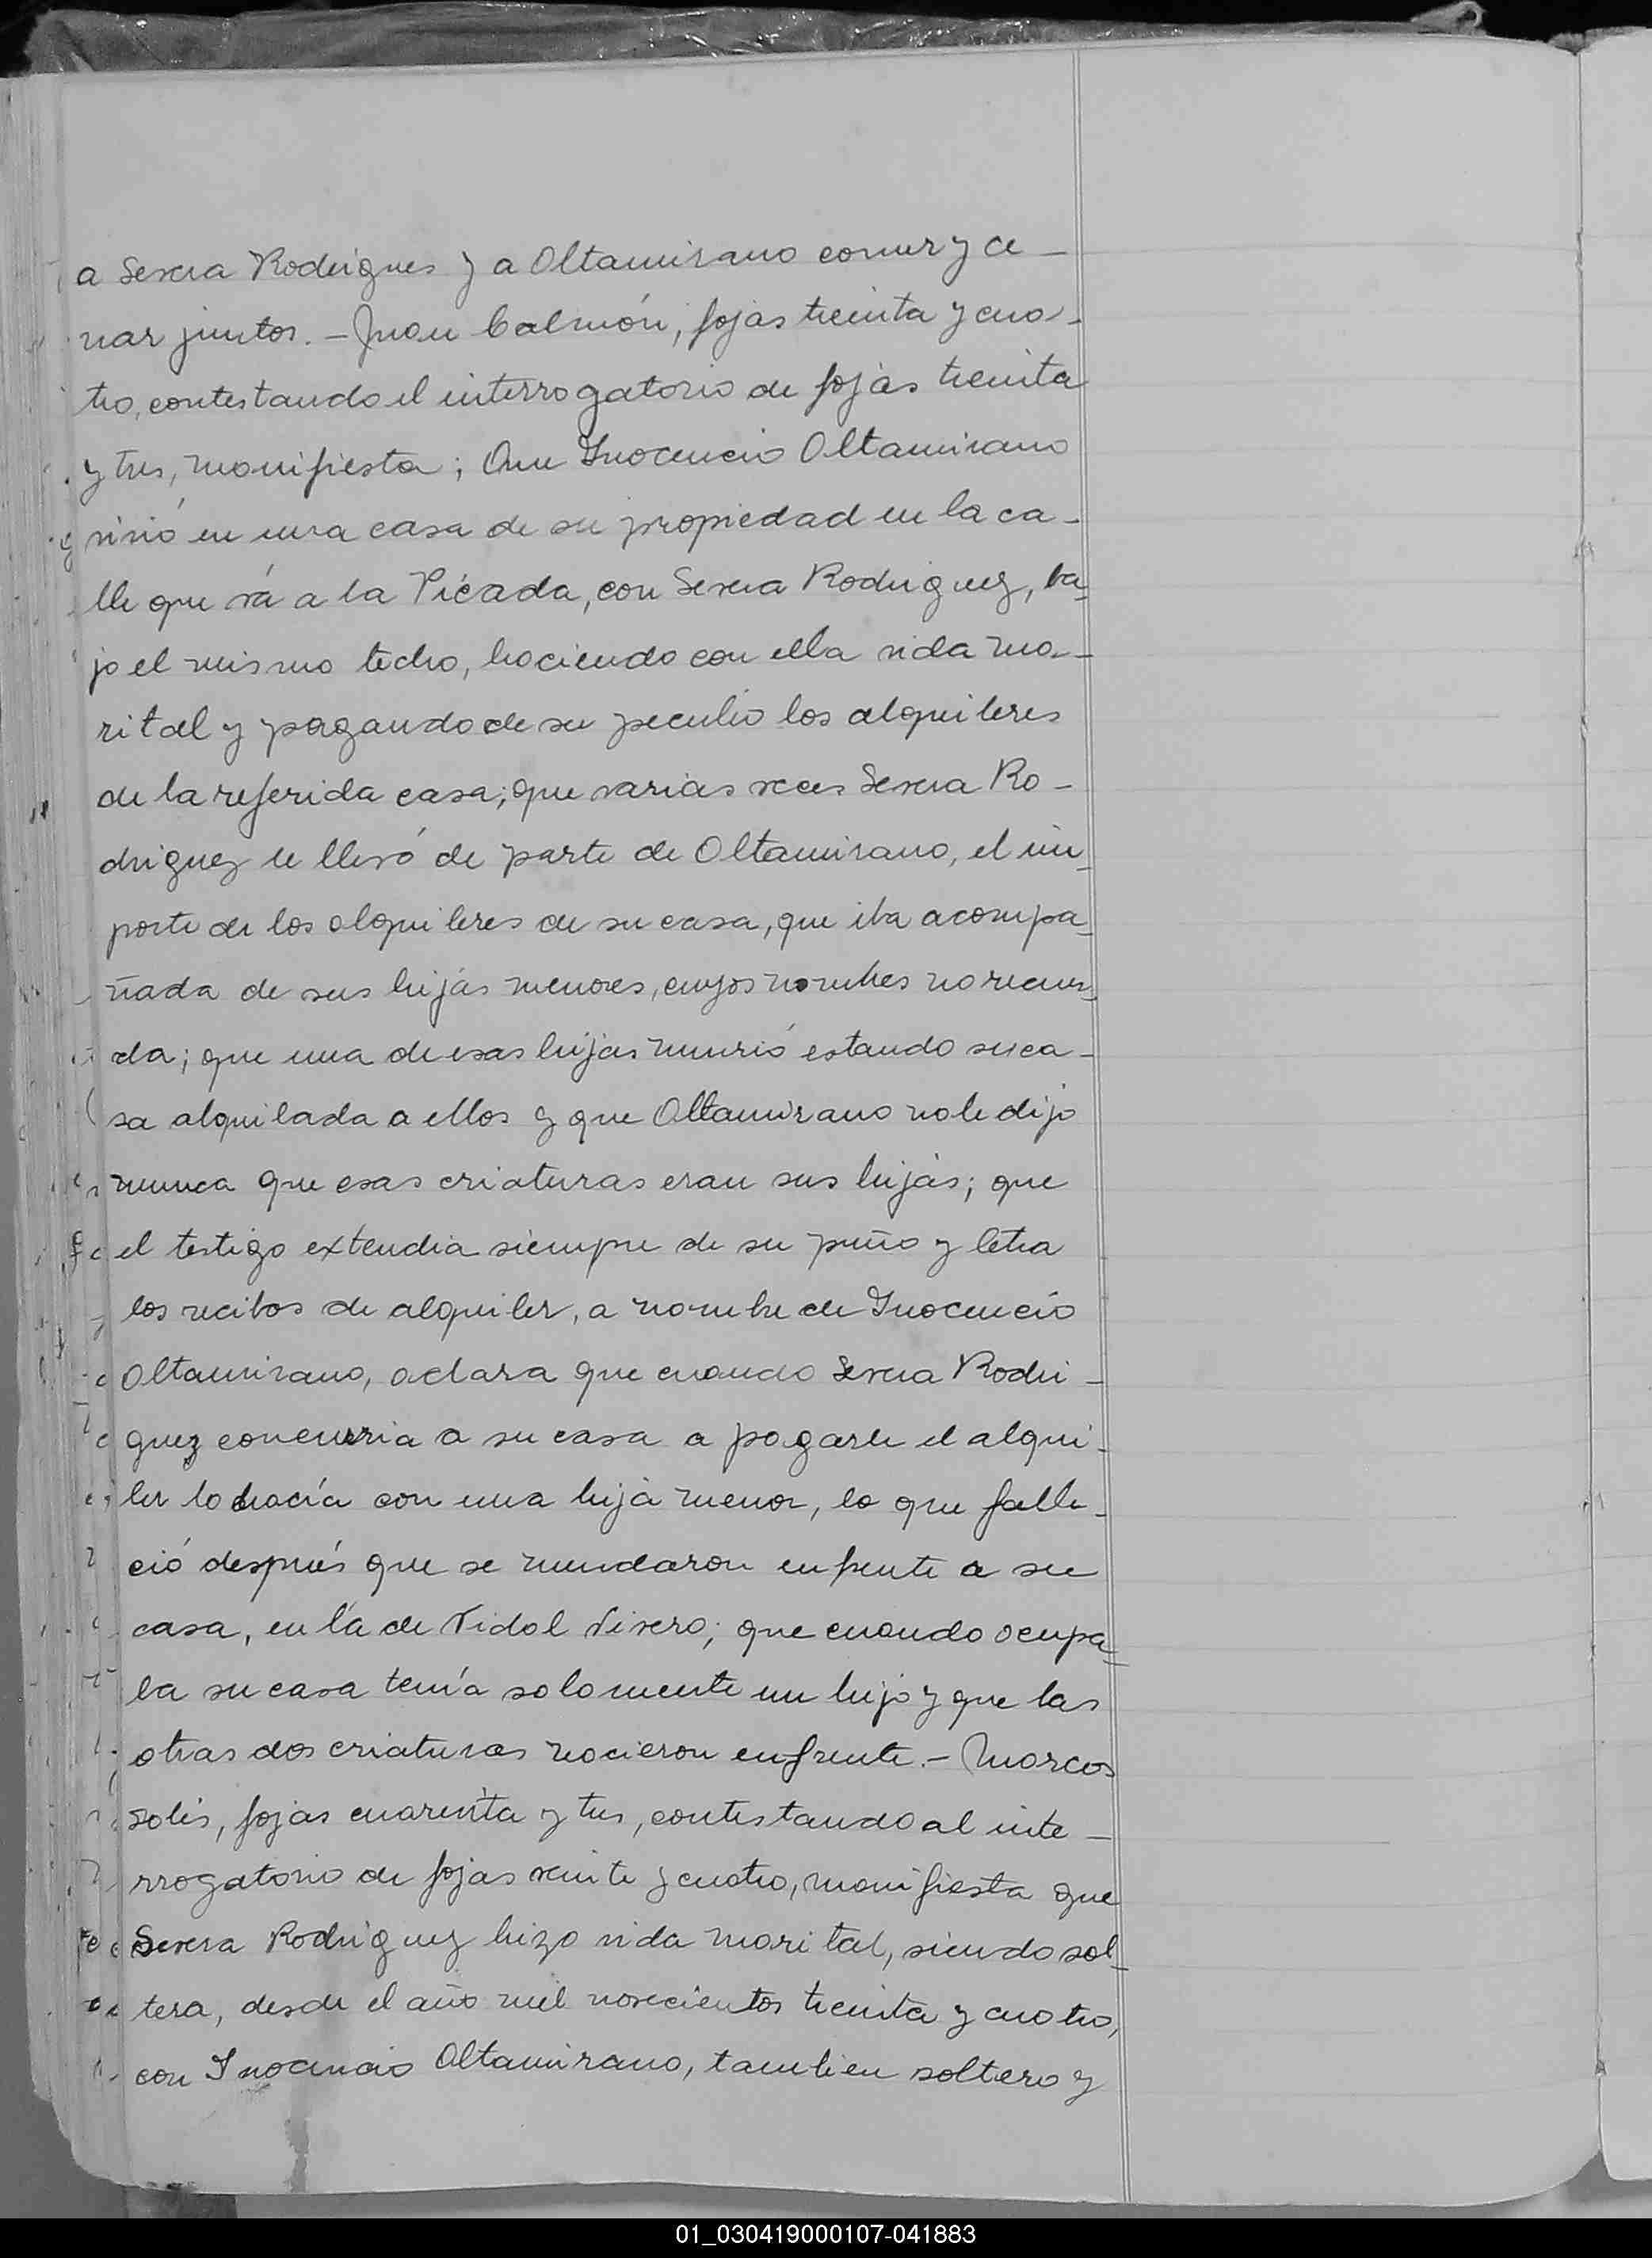 a Severa Rodrigues y a Altamirano comer y ce-
nar juntos.- Juan Calmón, fojas treinta y cua-
tro, contestando el interrogatorio de fojas treinta
y tres, manifiesta; Que Inocencio Altamirano
vivió en una casa de su propiedad en la ca-
lle que vá a la Picada, con Severa Rodriguez, ba-
jo el mismo techo, haciendo con ella vida ma-
rital y pagando de su peculio los alquileres
de la referida casa; que varias veces Severa Ro-
driguez le llevó de parte de Altamirano, el im-
porte de los alquileres de su casa, que iba acompa-
ñada de sus hijas menores, cuyos nombres no recuer-
da; que una de esas hijas murió estando su ca-
sa alquilada a ellos y que Altamirano no le dijo
nunca que esas criaturas eran sus hijas; que
el testigo extendia siempre de su puño y letra
los recibos de alquiler, a nombre de Inocencio
Altamirano, aclara que cuando Severa Rodri-
guez concurria a su casa a pagarle el alqui-
ler lo hacía con una hija menor, la que falle-
ció después que se mudaron enfrente a su
casa, en la de Vidal Vivero; que cuando ocupa-
ba su casa tenía solamente un hijo y que las
otras dos criaturas nacieron enfrente.- Marcos
Solis, fojas cuarenta y tres, contestando al inte-
rrogatorio de fojas veinte y cuatro, manifiesta que
Severa Rodriguez hizo vida marital, siendo sol-
tera, desde el año mil novecientos treinta y cuatro,
con Inocencio Altamirano, tambien soltero y
01_030419000107-041883